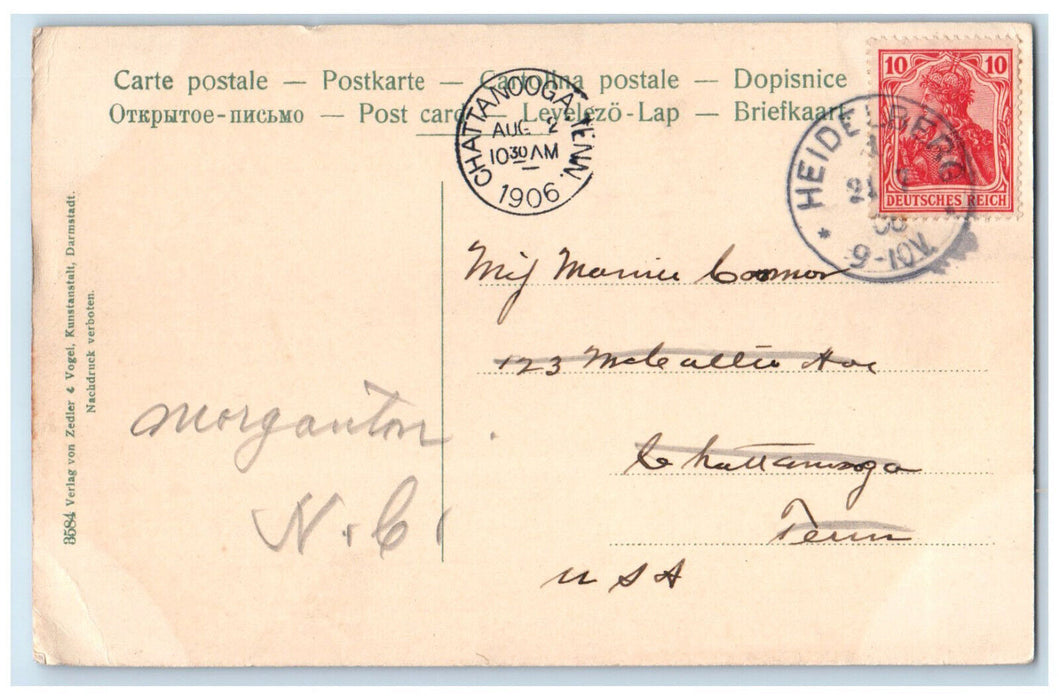 Carte postale — Postkarte — Cartolina postale — Dopisnice
Открытое-письмо — Post card — Levelező-Lap — Briefkaart
CHATTANOOGA, TENN.
AUG 2
10 30 AM
1906
10 10
DEUTSCHES REICH
HEIDELBERG
9-10V.
Miss Mamie Connor
123 McCallie Ave
Chattanooga
Tenn
USA
Morganton
N.C.
3584 Verlag von Zedler & Vogel, Kunstanstalt, Darmstadt.
Nachdruck verboten.